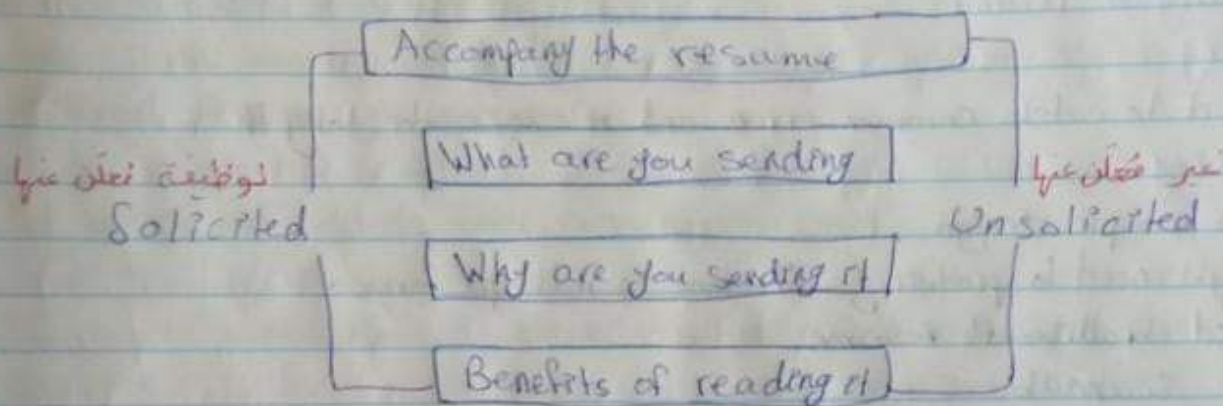 Accompany the resume
What are you sending
لوظيفة معلن عنها
غير معلن عنها
Solicited
Unsolicited
Why are you sending it
Benefits of reading it